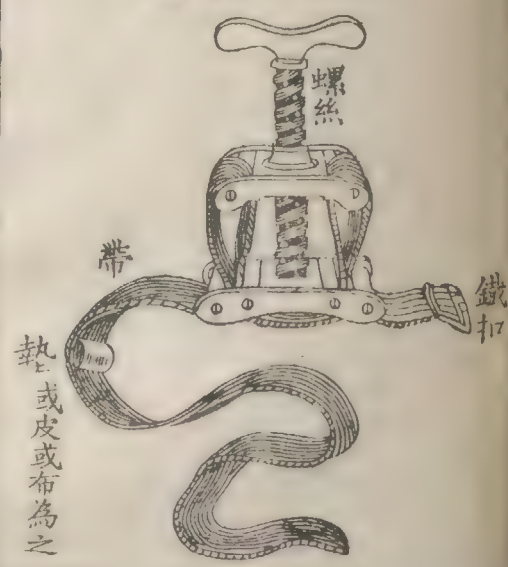 螺絲
鐵扣
帶
墊或皮或布為之